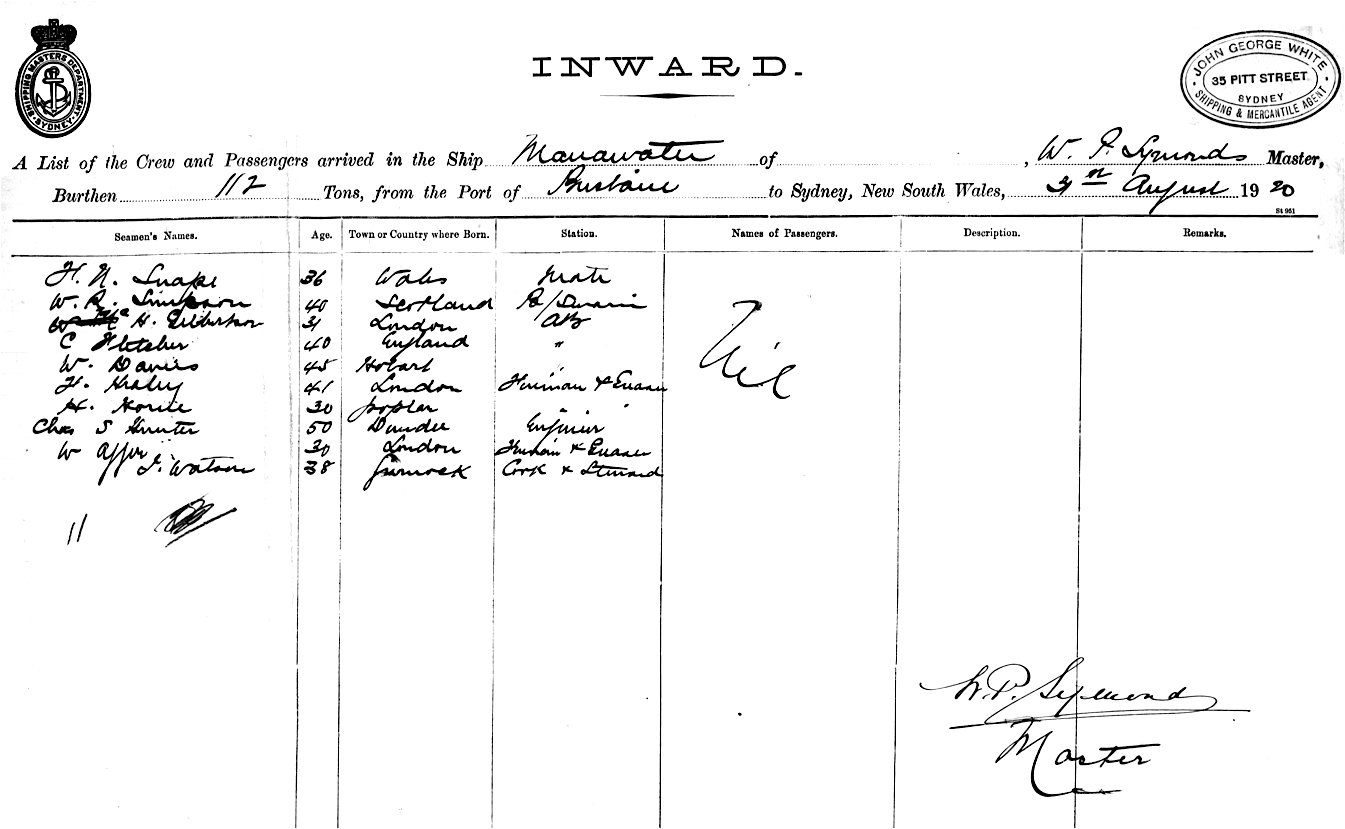 SHIPPING MASTERS DEPARTMENT SYDNEY
INWARD.
JOHN GEORGE WHITE
35 PITT STREET
SYDNEY
SHIPPING & MERCANTILE AGENT
A List of the Crew and Passengers arrived in the Ship Manawater of , W. P. Symonds Master,
Burthen 112 Tons, from the Port of Brisbane to Sydney, New South Wales, 31st August 1920
St 961
Seamen's Names. Age. Town or Country where Born. Station. Names of Passengers. Description. Remarks.
H. N. Snape 36 Wales Mate
W. R. Simpson 40 Scotland B/Swain
H. Gilbertson 31 London AB
C Fletcher 40 England "
W. Davies 45 Hobart "
Nil
41 London Fireman &
H. 30 Poplar " "
Chas S Hunter 50 Dundee Engineer
W 30 London Fireman &
J. Watson 38 Cook & Steward
11
W. P. Symonds
Master